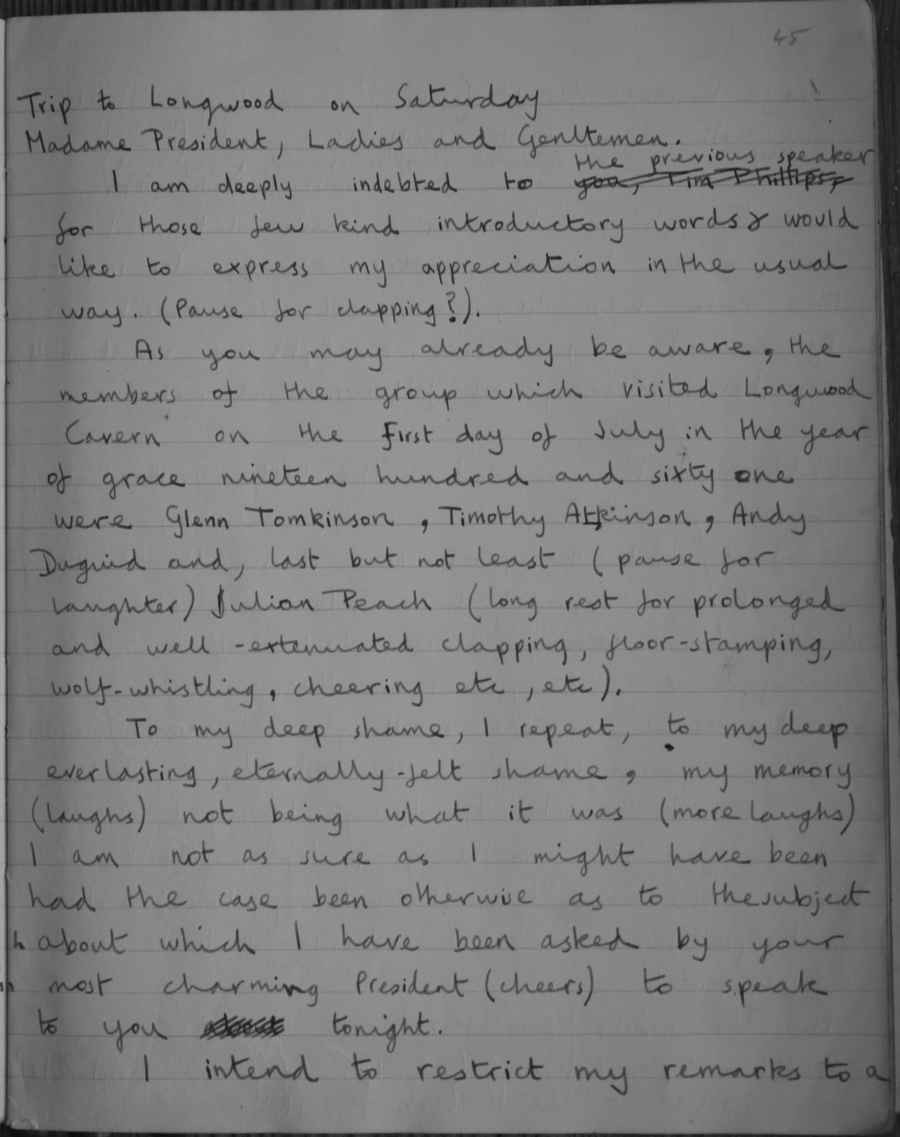 45
Trip to Longwood on Saturday
Madame President, Ladies and Genltemen.
the previous speaker
I am deeply indebted to you, Tim Phillips,
for those few kind introductory words & would
like to express my appreciation in the usual
way. (Pause for clapping?).
As you may already be aware, the
members of the group which visited Longwood
Cavern on the first day of July in the year
of grace nineteen hundred and sixty one
were Glenn Tomkinson, Timothy Atkinson, Andy
Duguid and, last but not least (pause for
laughter) Julian Peach (long rest for prolonged
and well-extenuated clapping, floor-stamping,
wolf-whistling, cheering etc, etc).
To my deep shame, I repeat, to my deep
everlasting, eternally-felt shame, my memory
(laughs) not being what it was (more laughs)
I am not as sure as I might have been
had the case been otherwise as to the subject
about which I have been asked by your
most charming President (cheers) to speak
to you tonight.
I intend to restrict my remarks to a